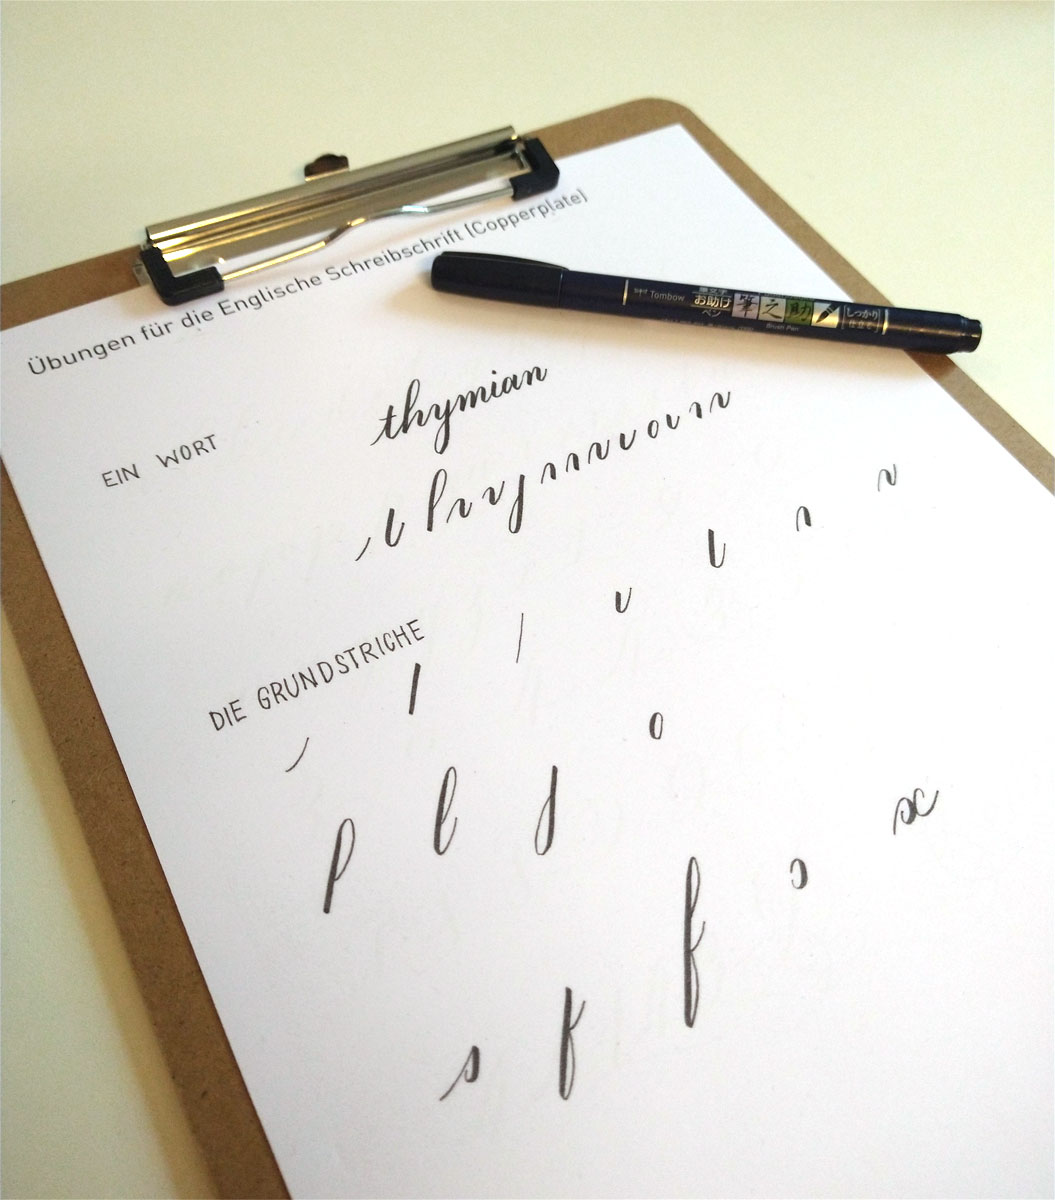 Übungen für die Englische Schreibschrift (Copperplate)
Tombow
筆文字
お助け
ペン
筆之助
しっかり
仕立て
Brush Pen
EIN WORT
thymian
DIE GRUNDSTRICHE